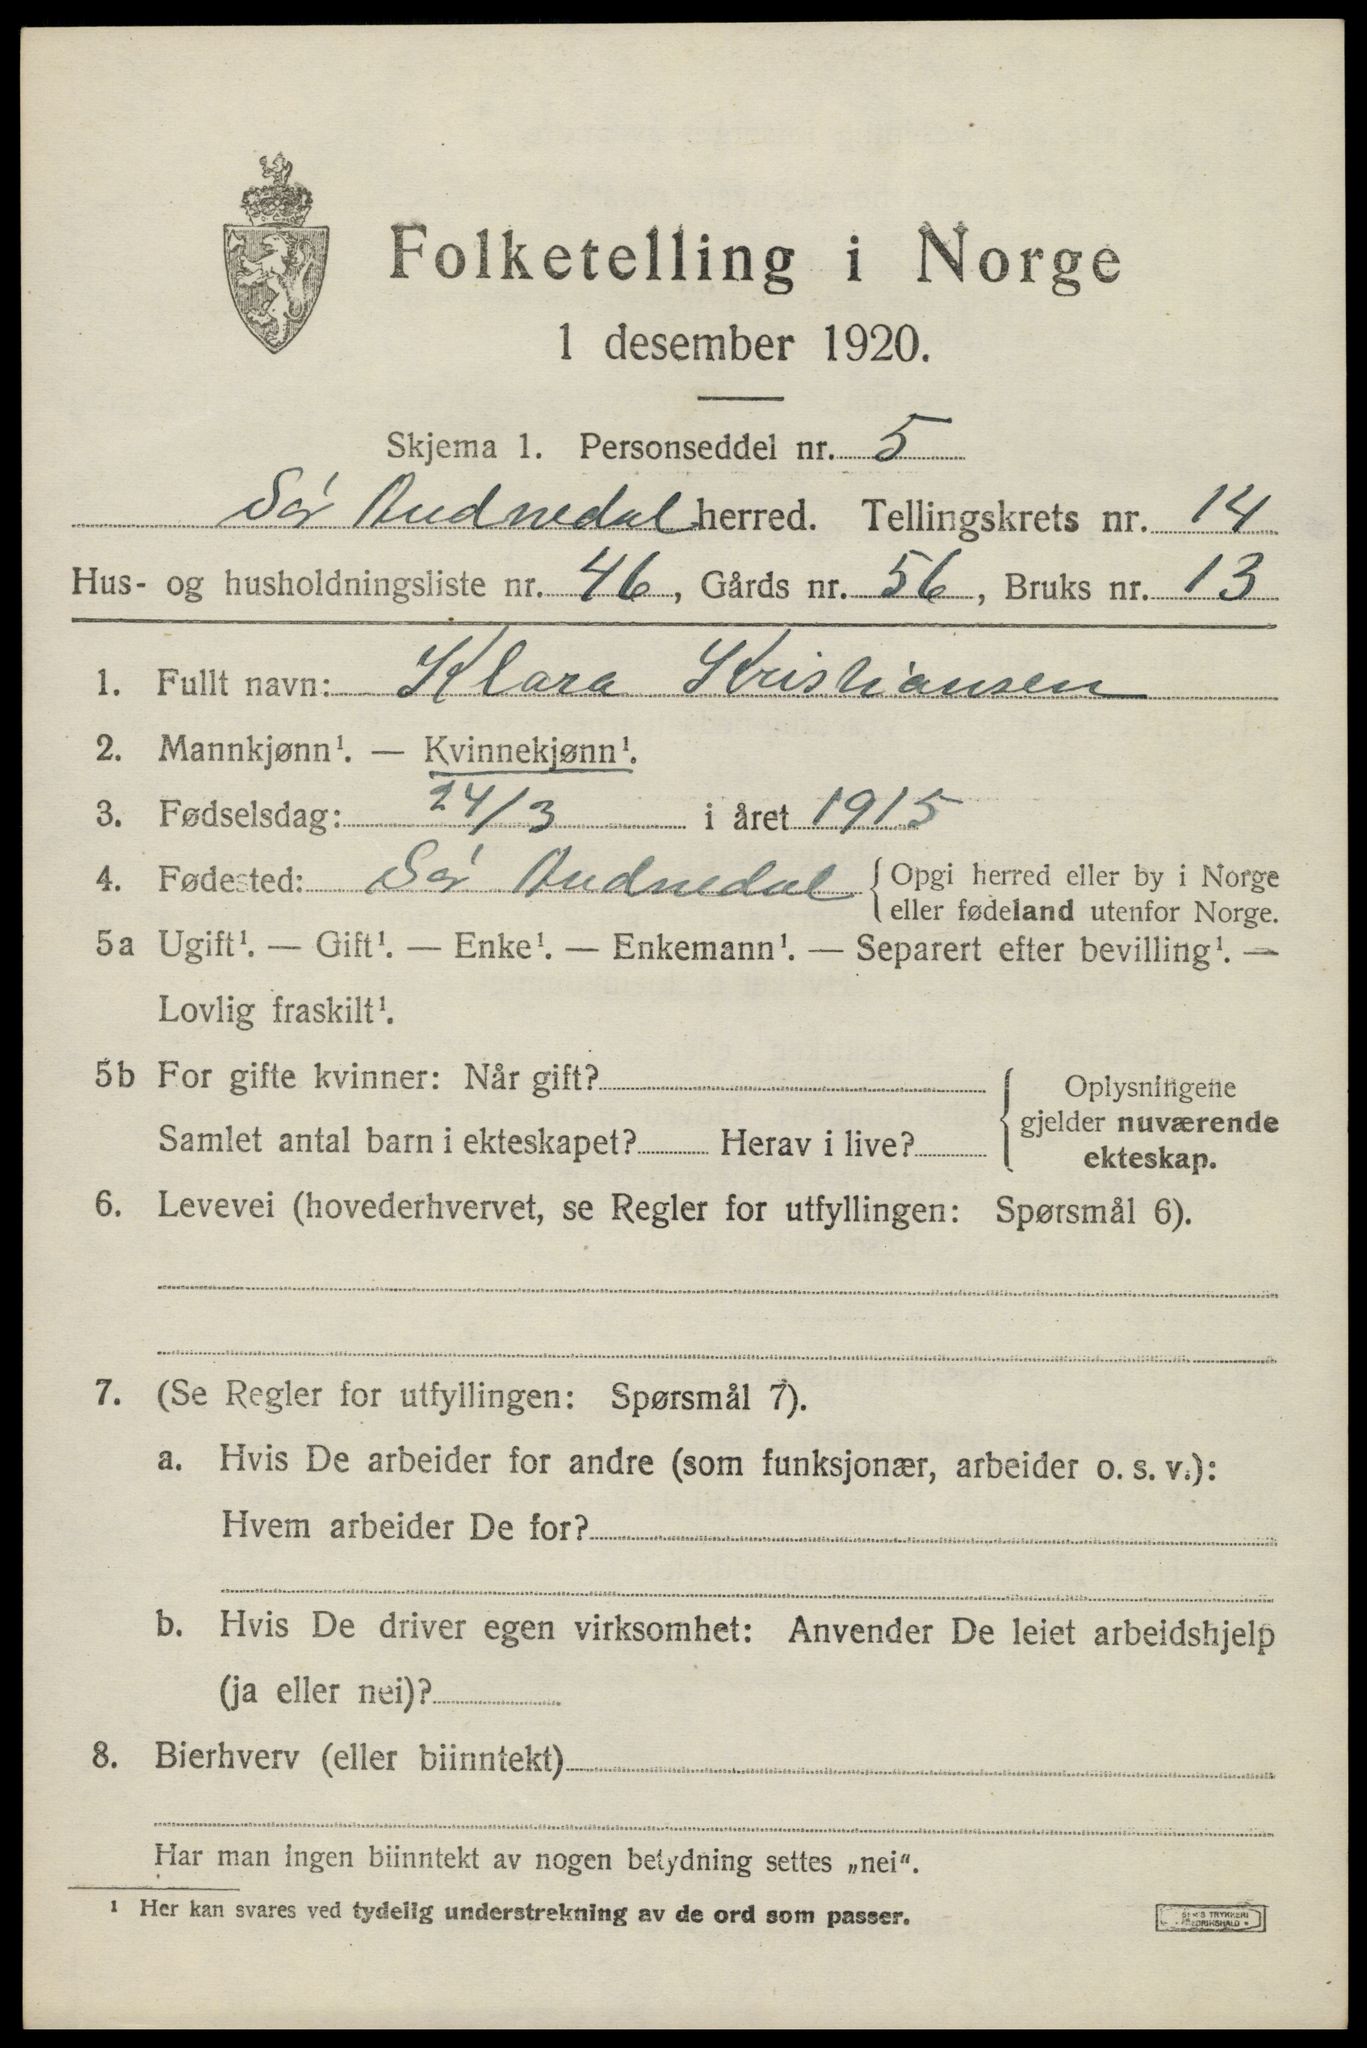 Folketelling i Norge
1 desember 1920.
Skjema 1. Personseddel nr. 5
Sør Audnedal herred. Tellingskrets nr. 14
Hus- og husholdningsliste nr. 46, Gårds nr. 56, Bruks nr. 13
1. Fullt navn: Klara Kristiansen
2. Mannkjønn¹. — Kvinnekjønn¹.
3. Fødselsdag: 24/3 i året 1915
4. Fødested: Sør Audnedal { Opgi herred eller by i Norge
eller fødeland utenfor Norge.
5a Ugift¹. — Gift¹. — Enke¹. — Enkemann¹. — Separert efter bevilling¹. —
Lovlig fraskilt¹.
5b For gifte kvinner: Når gift?
Samlet antal barn i ekteskapet? Herav i live?
Oplysningene
gjelder nuværende
ekteskap.
6. Levevei (hovederhvervet, se Regler for utfyllingen: Spørsmål 6).
7. (Se Regler for utfyllingen: Spørsmål 7).
a. Hvis De arbeider for andre (som funksjonær, arbeider o. s. v.):
Hvem arbeider De for?
b. Hvis De driver egen virksomhet: Anvender De leiet arbeidshjelp
(ja eller nei)?
8. Bierhverv (eller biinntekt)
Har man ingen biinntekt av nogen betydning settes „nei".
¹ Her kan svares ved tydelig understrekning av de ord som passer.
TRYKKERI